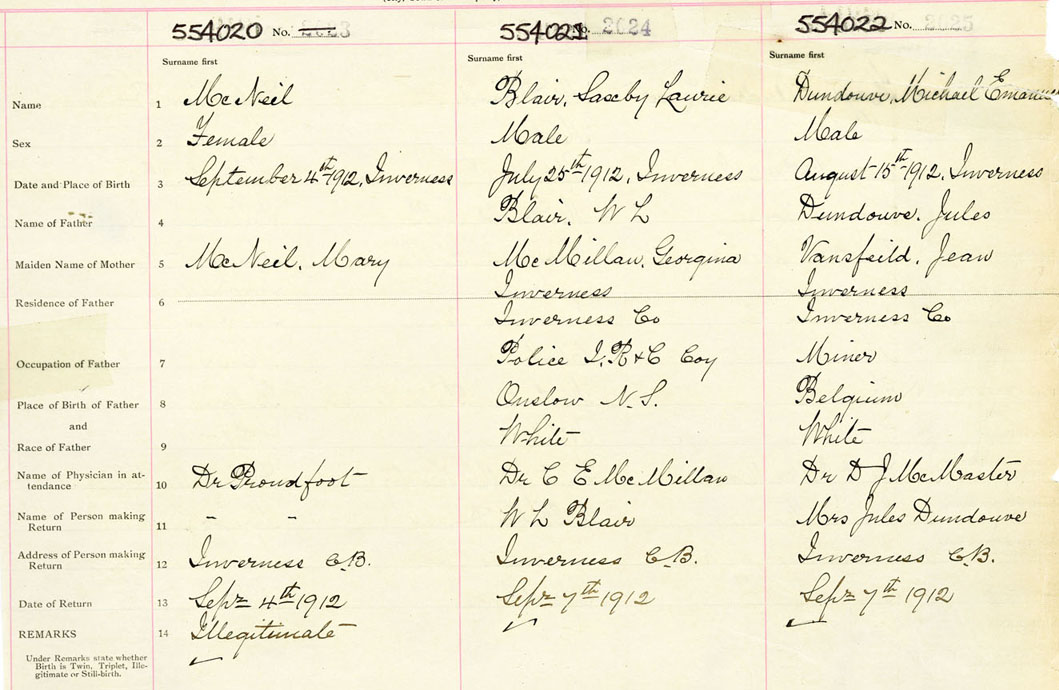 554020 No. 2023 554021 No. 2024 554022 No. 2025
Surname first Surname first Surname first
Name 1 McNeil Blair, Saxby Lawrie Dundouve, Michael Emanuel
Sex 2 Female Male Male
Date and Place of Birth 3 September 4th 1912, Inverness July 25th 1912, Inverness August 15th 1912, Inverness
Name of Father 4 Blair, W L Dundouve, Jules
Maiden Name of Mother 5 McNeil, Mary McMillan, Georgina Vansfeild, Jean
Residence of Father 6 Inverness Inverness
Inverness Co Inverness Co
Occupation of Father 7 Police I. R & C Coy Miner
Place of Birth of Father 8 Onslow N.S. Belgium
and
Race of Father 9 White White
Name of Physician in at-
tendance 10 Dr Proudfoot Dr C E McMillan Dr D J McMaster
Name of Person making
Return 11 " " W L Blair Mrs Jules Dundouve
Address of Person making
Return 12 Inverness C.B. Inverness C.B. Inverness C.B.
Date of Return 13 Sept 4th 1912 Sept 7th 1912 Sept 7th 1912
REMARKS 14 Illegitimate
Under Remarks state whether
Birth is Twin, Triplet, Ille-
gitimate or Still-birth.